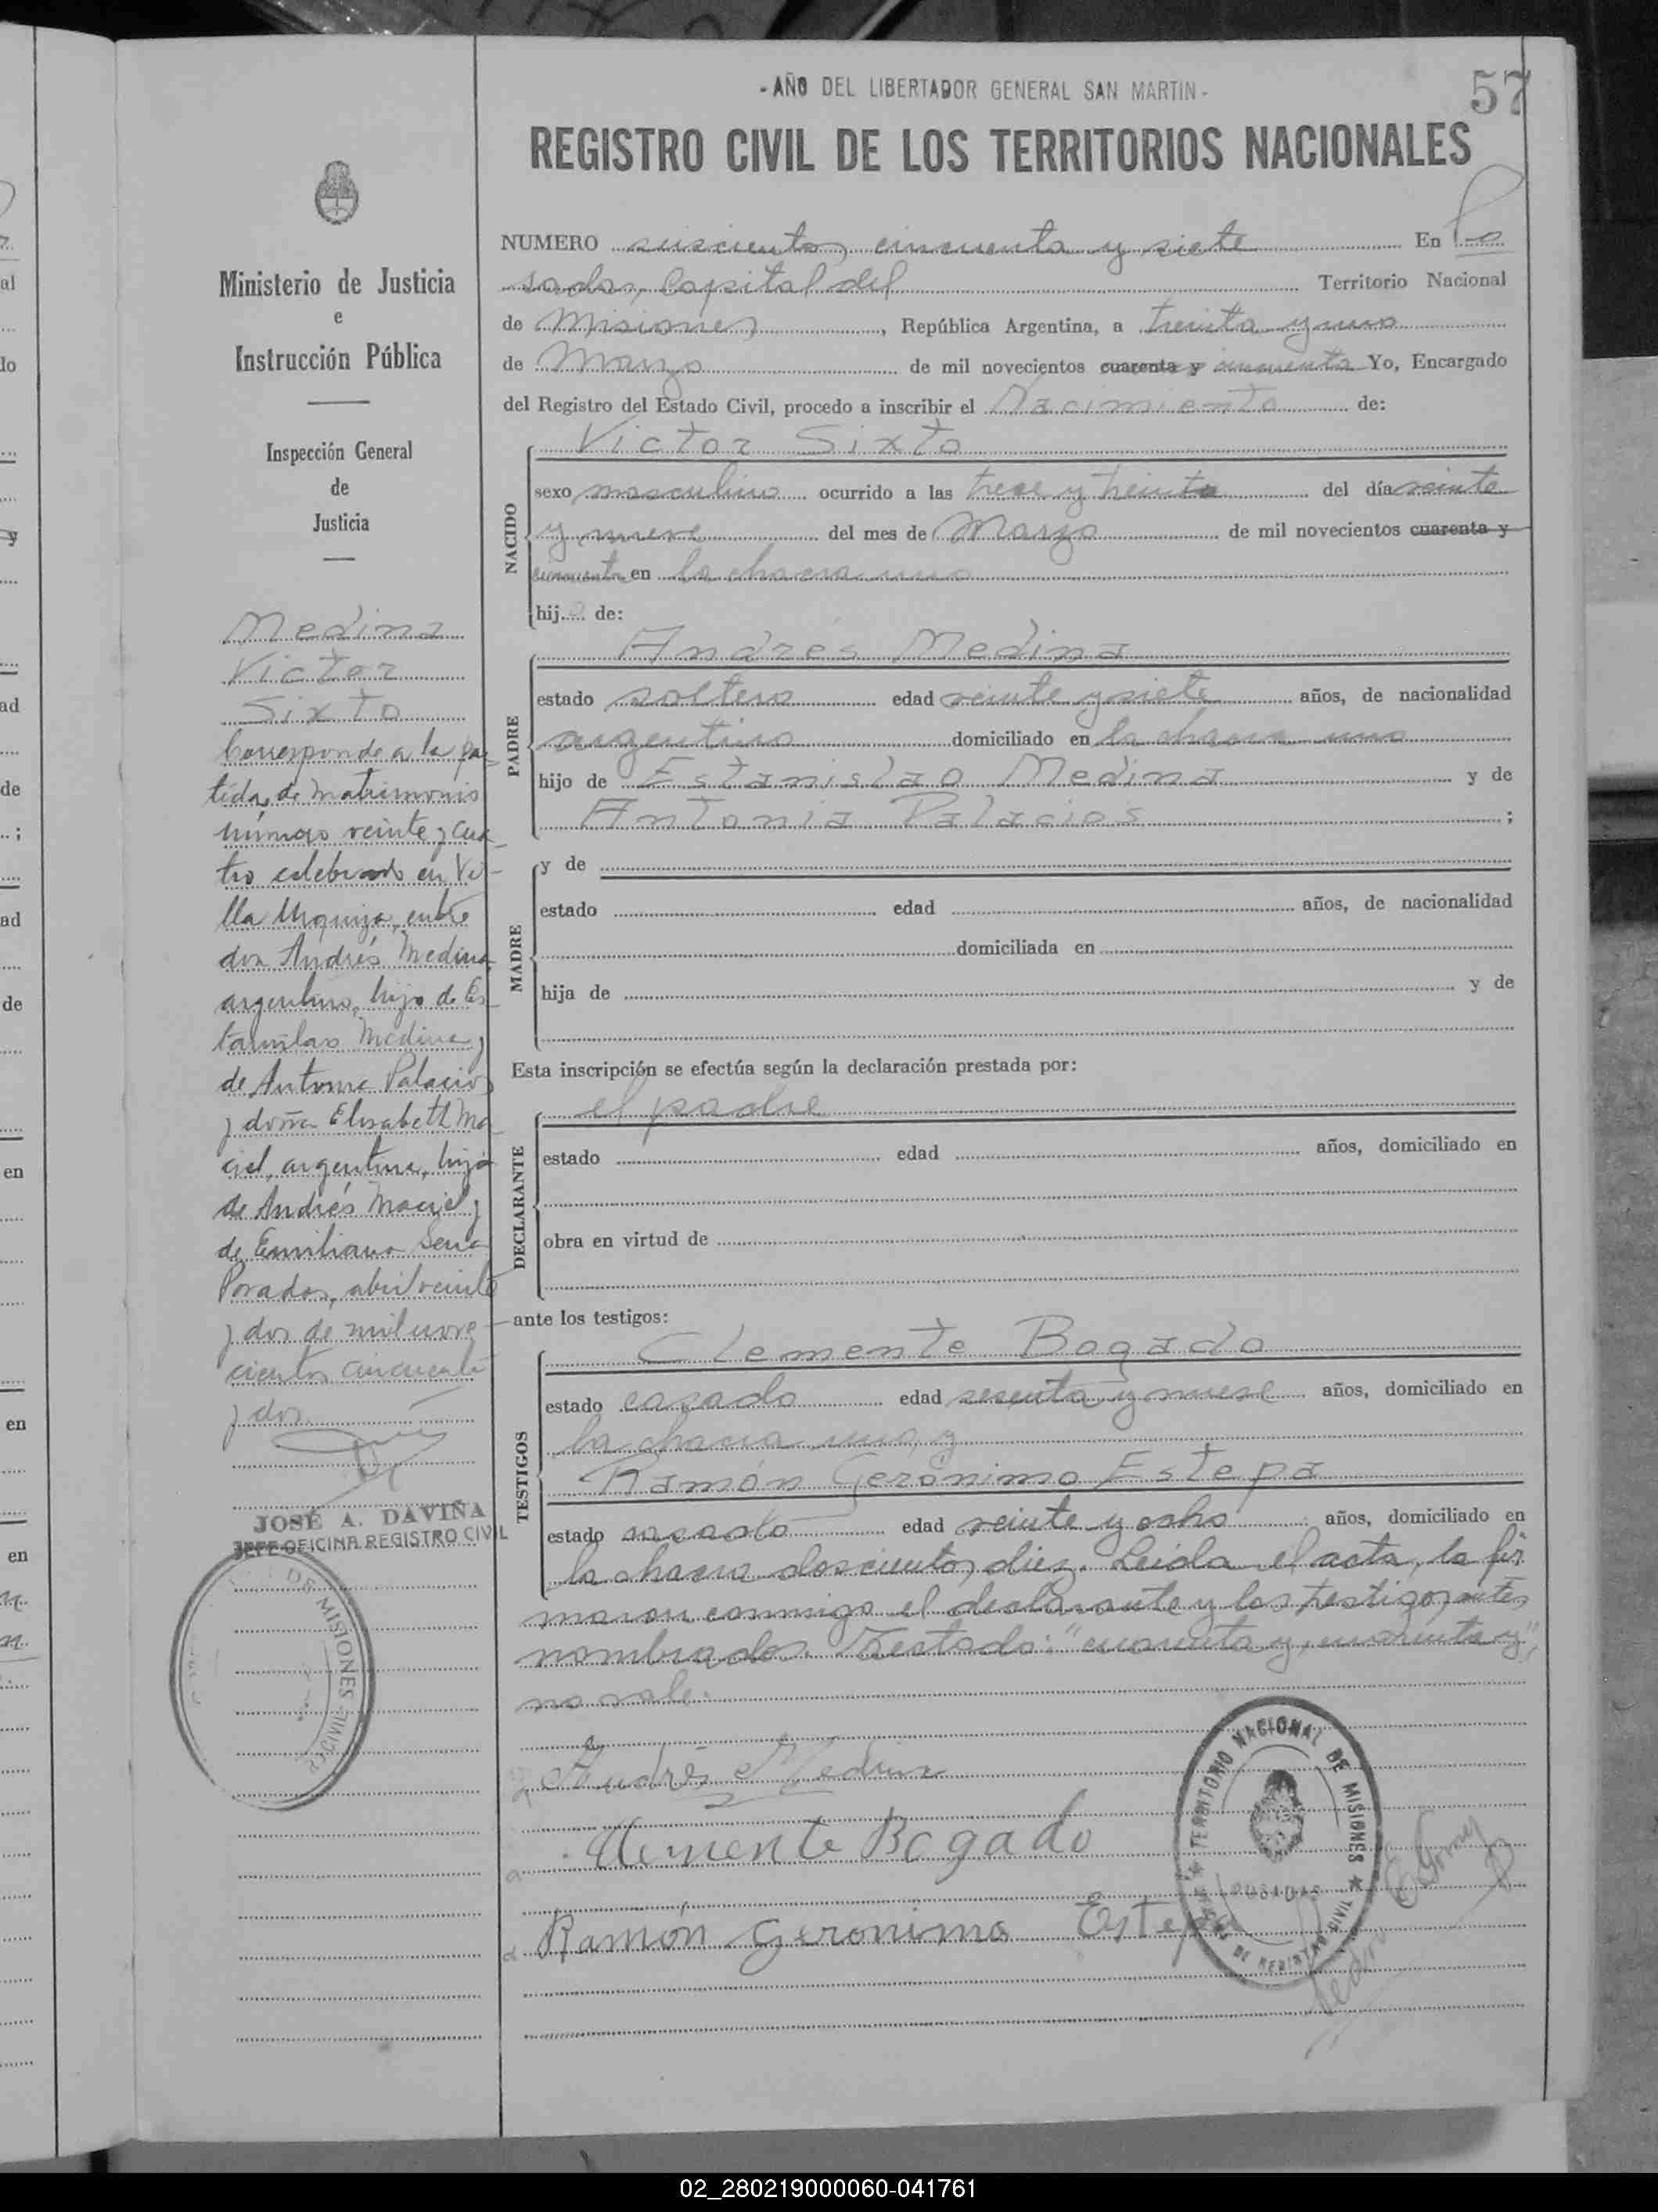 - AÑO DEL LIBERTADOR GENERAL SAN MARTIN -
57
REGISTRO CIVIL DE LOS TERRITORIOS NACIONALES
Ministerio de Justicia
e
Instrucción Pública
Inspección General
de
Justicia
Medina
Victor
Sixto
Corresponde a la par
tida de matrimonio
número veinte y cua
tro celebrado en Vi-
lla Urquiza, entre
don Andrés Medina
argentino, hijo de Es
tanislao Medina y
de Antonia Palacios
y doña Elisabeth Ma
ciel, argentina, hija
de Andrés Maciel y
de Emiliana
Posadas, abril veinte
y dos de mil nove
cientos cincuenta
y dos
JOSÉ A. DAVIÑA
JEFE OFICINA REGISTRO CIVIL
DE MISIONES
CIVIL
NUMERO seiscientos cincuenta y siete En Po
sadas, Capital del Territorio Nacional
de Misiones, República Argentina, a treinta y uno
de Marzo de mil novecientos cuarenta y cincuenta Yo, Encargado
del Registro del Estado Civil, procedo a inscribir el Nacimiento de:
NACIDO
Victor Sixto
sexo masculino ocurrido a las trece y treinta del día veinte
y nueve del mes de Marzo de mil novecientos cuarenta y
cincuenta en la chacra uno
hijo de:
PADRE
Andrés Medina
estado soltero edad veinte y siete años, de nacionalidad
argentino domiciliado en la chacra uno
hijo de Estanislao Medina y de
Antonia Palacios ;
MADRE
y de
estado edad años, de nacionalidad
domiciliada en
hija de y de
Esta inscripción se efectúa según la declaración prestada por:
DECLARANTE
el padre
estado edad años, domiciliado en
obra en virtud de
ante los testigos:
TESTIGOS
Clemente Bogado
estado casado edad sesenta y nueve años, domiciliado en
la chacra uno, y
Ramón Gerónimo Estepa
estado casado edad veinte y ocho años, domiciliado en
la chacra doscientos diez. Leída el acta, la fir
maron conmigo el declarante y los testigos antes
nombrados. Testado: "cuarenta y, cuarenta y",
no vale.
Andrés Medina
Clemente Bogado
Ramón Geronimo Estepa
TERRITORIO NACIONAL DE MISIONES
POSADAS
DE REGISTRO CIVIL
02_280219000060-041761